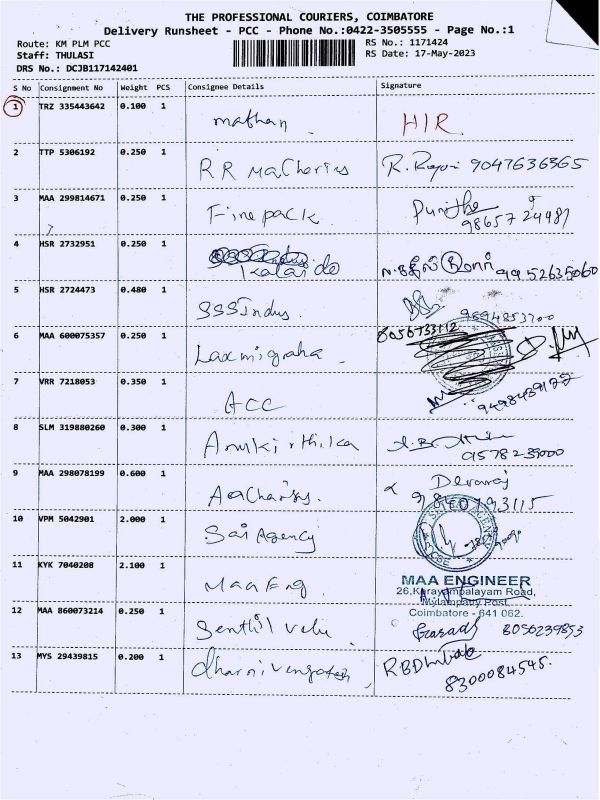 THE PROFESSIONAL COURIERS, COIMBATORE
Delivery Runsheet - PCC - Phone No.:0422-3505555 - Page No.:1
Route: KM PLM PCC RS No.: 1171424
Staff: THULASI RS Date: 17-May-2023
DRS No.: DCJB117142401
S No Consignment No Weight PCS Consignee Details Signature
1 TRZ 335443642 0.100 1 mathan. HIR
2 TTP 5306192 0.250 1 RR Macheries R. 9047636365
3 MAA 299814671 0.250 1 Fine pack Punitha
98657 24487
4 HSR 2732951 0.250 1 99 52635060
5 HSR 2724473 0.480 1 SSS Indus. 9594853700
6 MAA 600075357 0.250 1 Laxmi graha 8056733112
7 VRR 7218053 0.350 1 ACC 9498439122
8 SLM 319880260 0.300 1 9578235000
9 MAA 298078199 0.600 1 Devaraj
9840793115
10 VPM 5042901 2.000 1 Sai Agency
11 KYK 7040208 2.100 1 Maa Eng
MAA ENGINEER
26,Karayampalayam Road,
Mylampatty Post,
Coimbatore - 641 062.
12 MAA 860073214 0.250 1 Senthil Velu Prasad 8056239853
13 MYS 29439815 0.200 1 dharnivengatesh
8300084545.